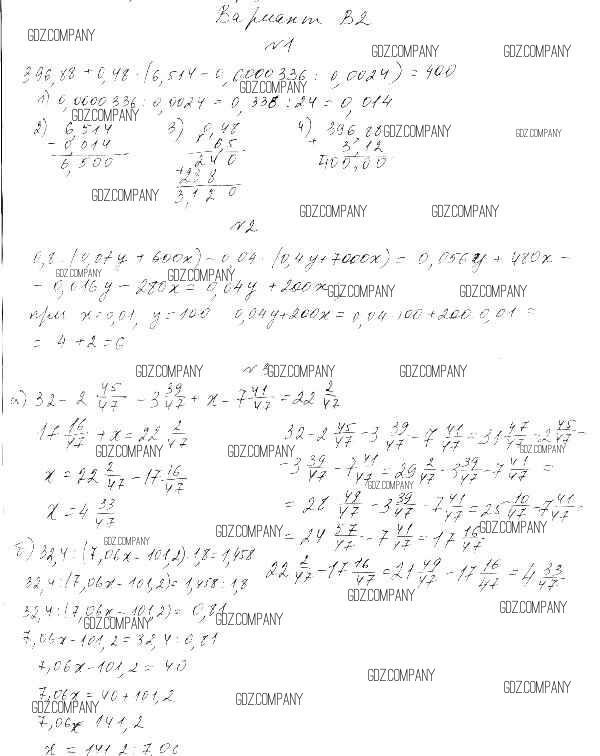 Вариант В2
GDZ.COMPANY
№1
GDZ.COMPANY GDZ.COMPANY
396,88 + 0,48 · (6,514 - 0,0000336 : 0,0024) = 400
GDZ.COMPANY
1) 0,0000336 : 0,0024 = 0,336 : 24 = 0,014
GDZ.COMPANY
2) 6,514 - 0,014 6,500
3) 0,48 · 6,5 240 + 288 3,120
4) 396,88 + 3,12 400,00
GDZ.COMPANY GDZ.COMPANY
GDZ.COMPANY GDZ.COMPANY GDZ.COMPANY
№2
0,8 · (0,07y + 600x) - 0,04 · (0,4y + 7000x) = 0,056y + 480x -
GDZ.COMPANY GDZ.COMPANY
- 0,016y - 280x = 0,04y + 200x
GDZ.COMPANY GDZ.COMPANY
при x = 0,01, y = 100 0,04y + 200x = 0,04 · 100 + 200 · 0,01 =
= 4 + 2 = 6
№3
GDZ.COMPANY GDZ.COMPANY GDZ.COMPANY
а) 32 - 2 45/47 - 3 39/47 + x - 7 41/47 = 22 2/47
17 16/47 + x = 22 2/47
GDZ.COMPANY
x = 22 2/47 - 17 16/47
x = 4 33/47
32 - 2 45/47 - 3 39/47 - 7 41/47 = 31 47/47 - 2 45/47 -
GDZ.COMPANY GDZ.COMPANY
- 3 39/47 - 7 41/47 = 29 2/47 - 3 39/47 - 7 41/47 =
GDZ.COMPANY
= 28 49/47 - 3 39/47 - 7 41/47 = 25 10/47 - 7 41/47 =
GDZ.COMPANY GDZ.COMPANY
= 24 57/47 - 7 41/47 = 17 16/47
22 2/47 - 17 16/47 = 21 49/47 - 17 16/47 = 4 33/47
GDZ.COMPANY
б) 32,4 : (7,06x - 101,2) · 1,8 = 1,458
GDZ.COMPANY
32,4 : (7,06x - 101,2) = 1,458 : 1,8
GDZ.COMPANY
32,4 : (7,06x - 101,2) = 0,81
GDZ.COMPANY GDZ.COMPANY
7,06x - 101,2 = 32,4 : 0,81
7,06x - 101,2 = 40
GDZ.COMPANY GDZ.COMPANY
7,06x = 40 + 101,2
GDZ.COMPANY GDZ.COMPANY
7,06x = 141,2
x = 141,2 : 7,06